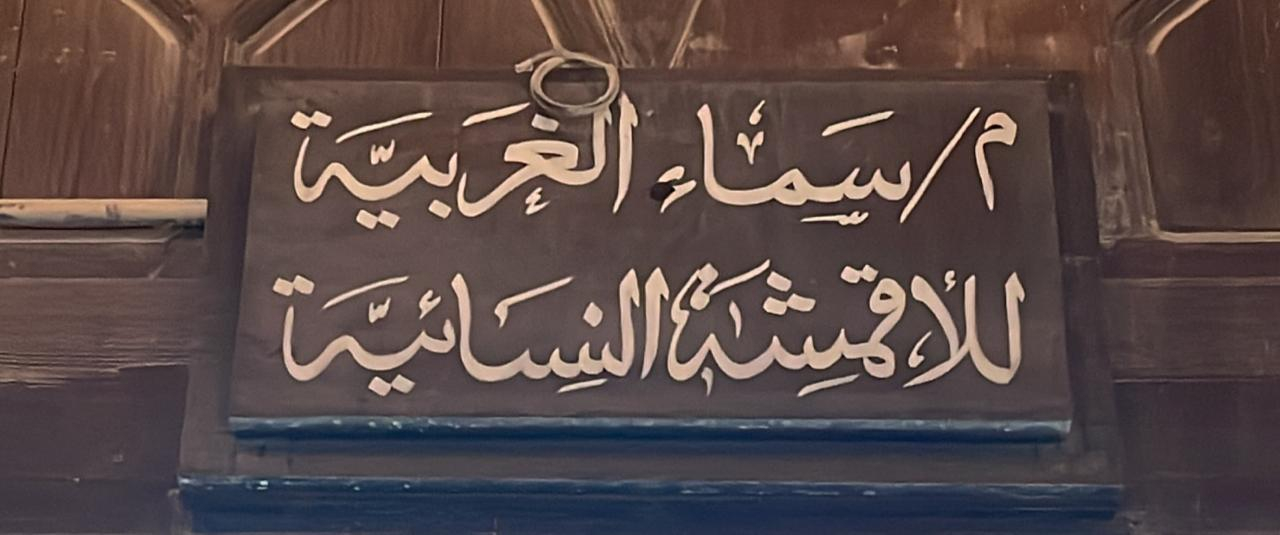 م/سماء الغربيّة
للأقمشة النسائيّة